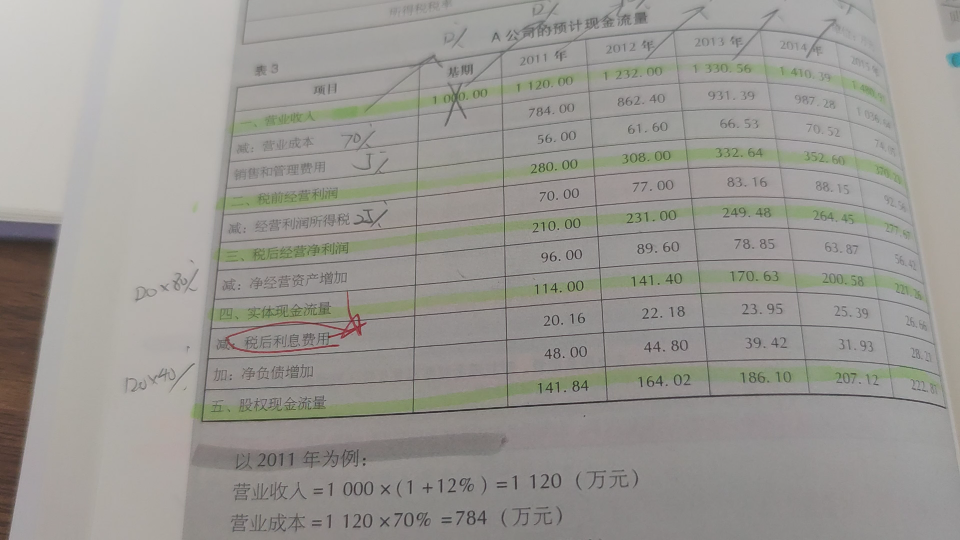 所得税税率
D% D%
A公司的预计现金流量
表3
项目 基期 2011年 2012年 2013年 2014年 2015年
一、营业收入 1 000.00 1 120.00 1 232.00 1 330.56 1 410.39
减：营业成本 70% 784.00 862.40 931.39 987.28
销售和管理费用 5% 56.00 61.60 66.53 70.52
二、税前经营利润 280.00 308.00 332.64 352.60
减：经营利润所得税 25% 70.00 77.00 83.16 88.15 92.56
三、税后经营净利润 210.00 231.00 249.48 264.45
减：净经营资产增加 96.00 89.60 78.85 63.87 56.42
D0×80%
四、实体现金流量 114.00 141.40 170.63 200.58 221.26
减：税后利息费用 20.16 22.18 23.95 25.39 26.66
加：净负债增加 48.00 44.80 39.42 31.93 28.21
120×40%
五、股权现金流量 141.84 164.02 186.10 207.12 222.81
以2011年为例：
营业收入=1 000×(1+12%)=1 120（万元）
营业成本=1 120×70%=784（万元）